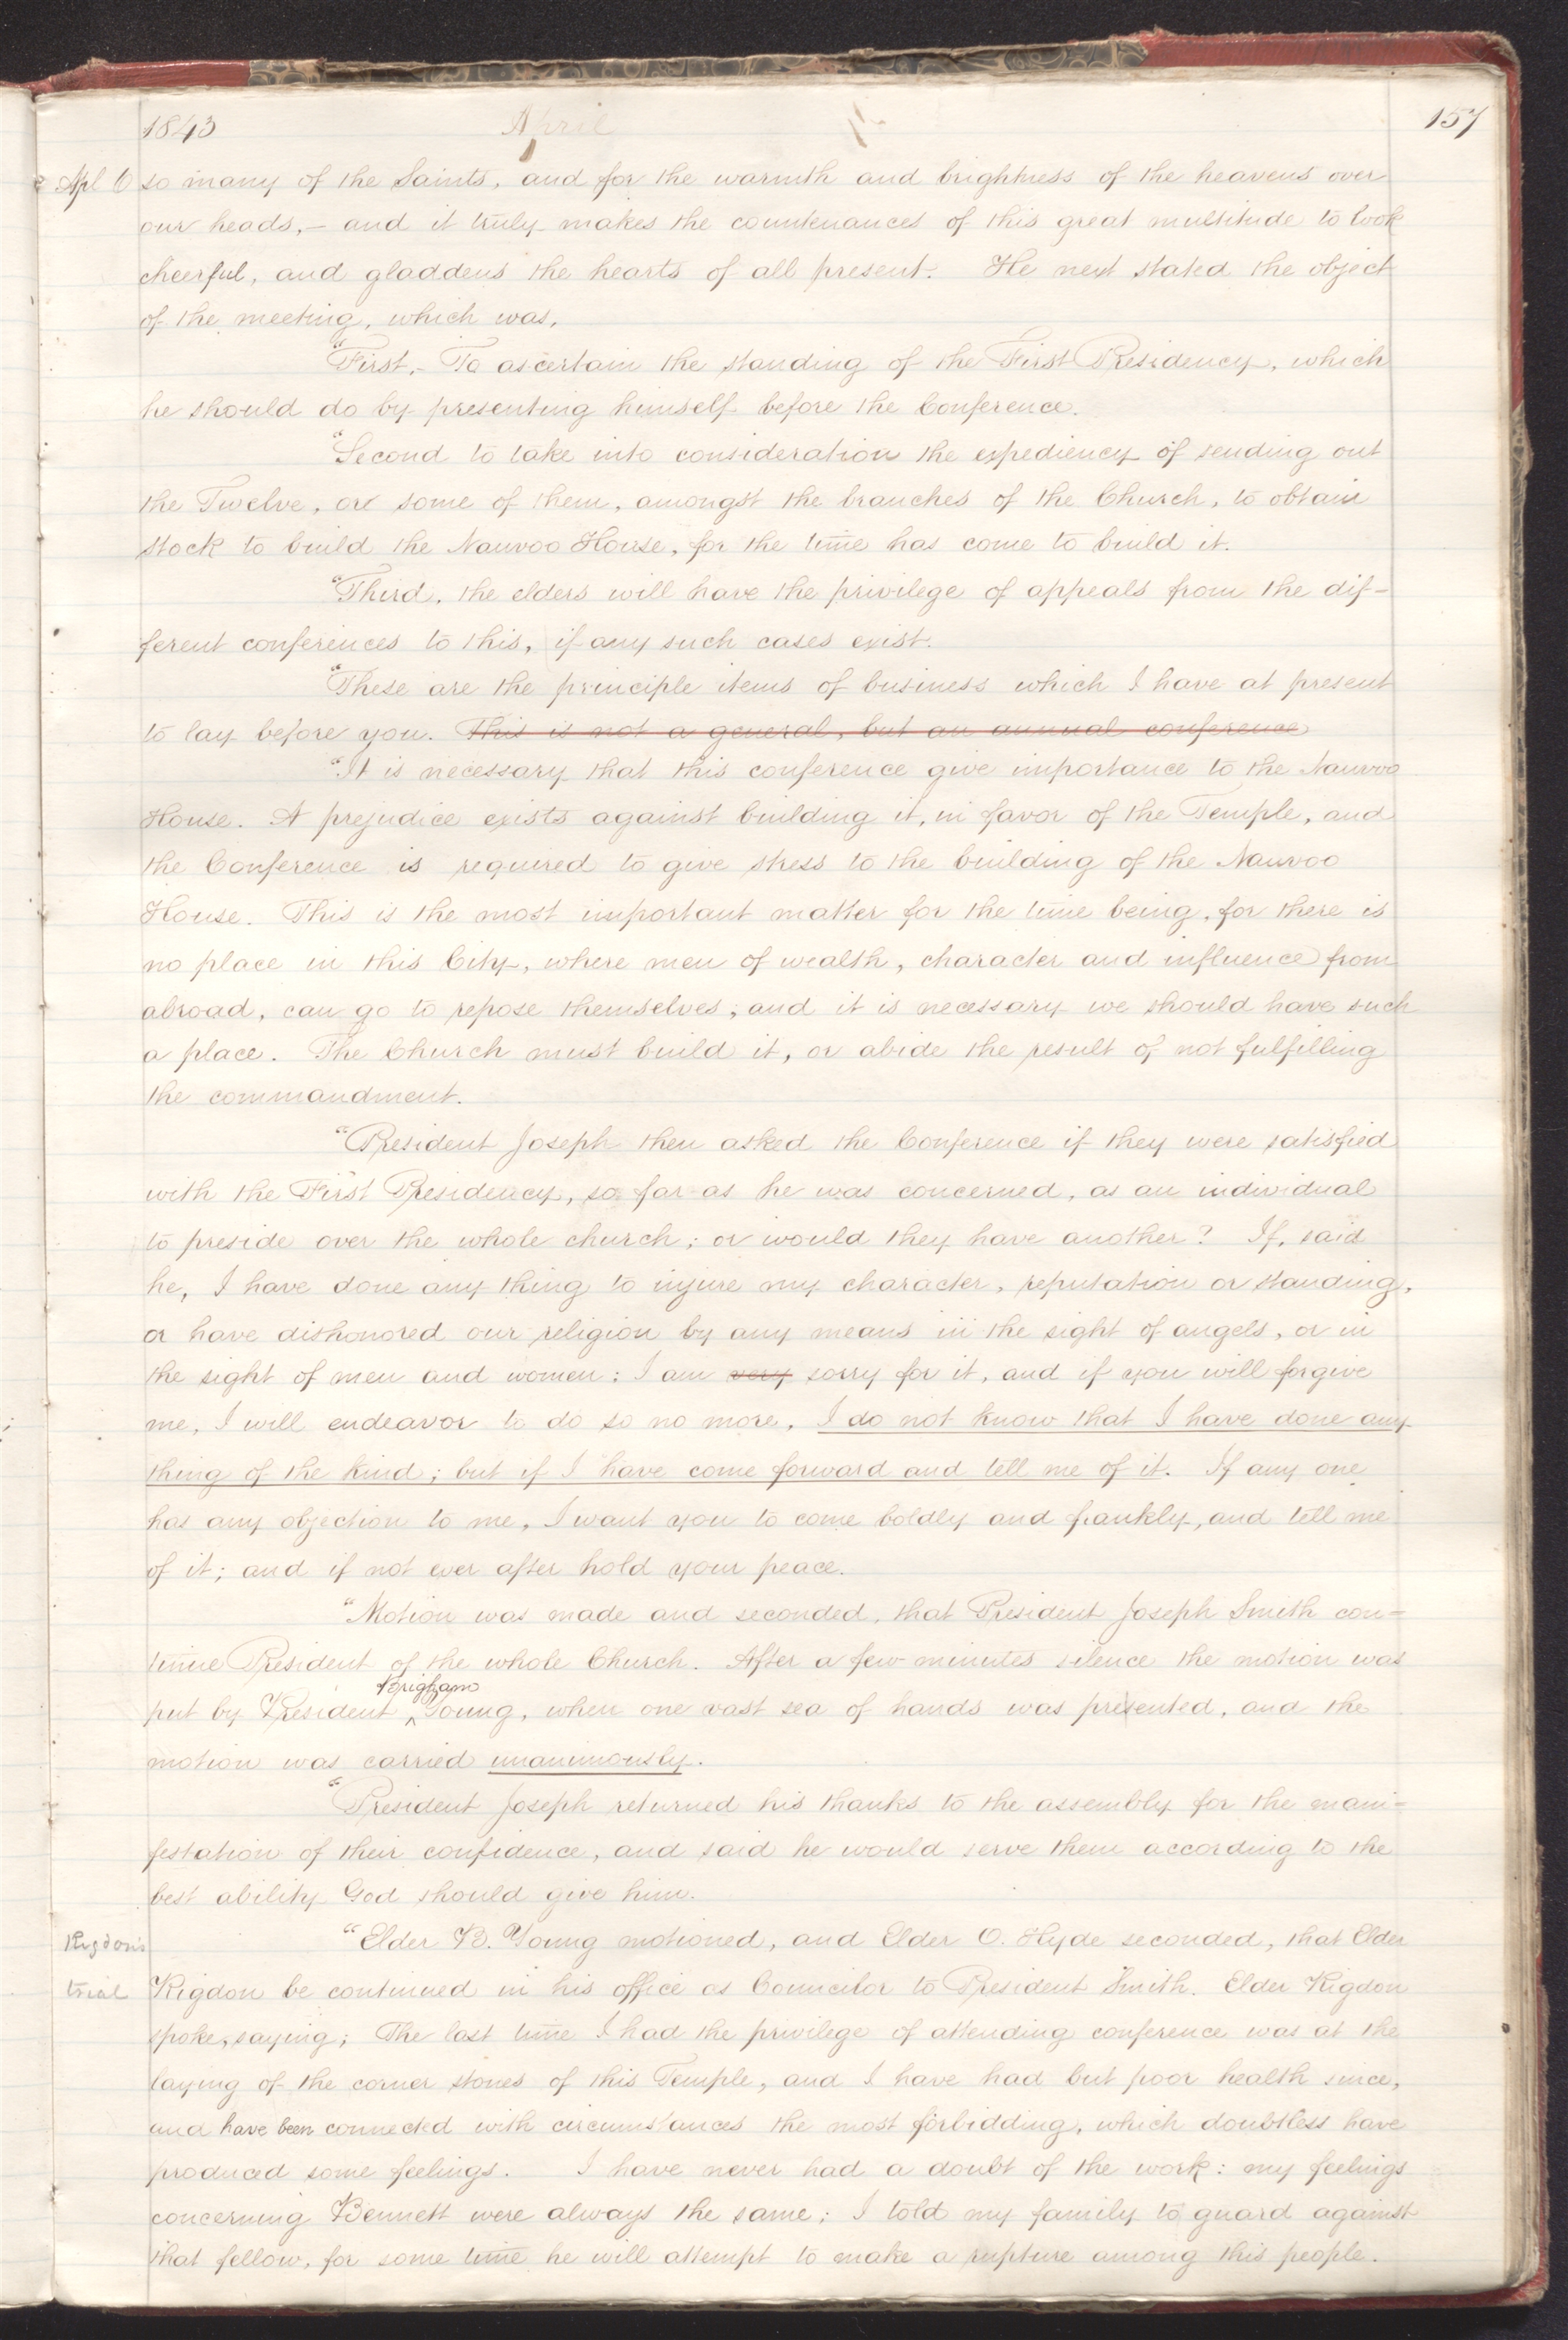 1843 April 157
Apl 6 so many of the Saints, and for the warmth and brightness of the heavens over
our heads,— and it truly makes the countenances of this great multitude to look
cheerful, and gladdens the hearts of all present. He next stated the object
of the meeting, which was,
"First,— To ascertain the standing of the First Presidency, which
he should do by presenting himself before the Conference.
"Second to take into consideration the expediency of sending out
the Twelve, or some of them, amongst the branches of the Church, to obtain
stock to build the Nauvoo House, for the time has come to build it.
"Third, the elders will have the privilege of appeals from the dif-
ferent conferences to this, if any such cases exist.
"These are the principle items of business which I have at present
to lay before you. This is not a general, but an annual conference
"It is necessary that this conference give importance to the Nauvoo
House. A prejudice exists against building it, in favor of the Temple, and
the Conference is required to give stress to the building of the Nauvoo
House. This is the most important matter for the time being, for there is
no place in this City, where men of wealth, character and influence from
abroad, can go to repose themselves, and it is necessary we should have such
a place. The Church must build it, or abide the result of not fulfilling
the commandment.
"President Joseph then asked the Conference if they were satisfied
with the First Presidency, so far as he was concerned, as an individual
to preside over the whole church; or would they have another? If, said
he, I have done any thing to injure my character, reputation or standing,
or have dishonored our religion by any means in the sight of angels, or in
the sight of men and women; I am very sorry for it, and if you will forgive
me, I will endeavor to do so no more, I do not know that I have done any
thing of the kind; but if I have come forward and tell me of it. If any one
has any objection to me, I want you to come boldly and frankly, and tell me
of it; and if not ever after hold your peace.
"Motion was made and seconded, that President Joseph Smith con=
tinue President of the whole Church. After a few minutes silence the motion was
Brigham
put by President ^ Young, when one vast sea of hands was presented, and the
motion was carried unanimously.
"President Joseph returned his thanks to the assembly for the mani=
festation of their confidence, and said he would serve them according to the
best ability God should give him.
Rigdon's "Elder B. Young motioned, and Elder O. Hyde seconded, that Elder
trial Rigdon be continued in his office as Councilor to President Smith. Elder Rigdon
spoke, saying; The last time I had the privilege of attending conference was at the
laying of the corner stones of this Temple, and I have had but poor health since,
and have been connected with circumstances the most forbidding, which doubtless have
produced some feelings. I have never had a doubt of the work: my feelings
concerning Bennett were always the same; I told my family to guard against
that fellow, for some time he will attempt to make a rupture among this people.